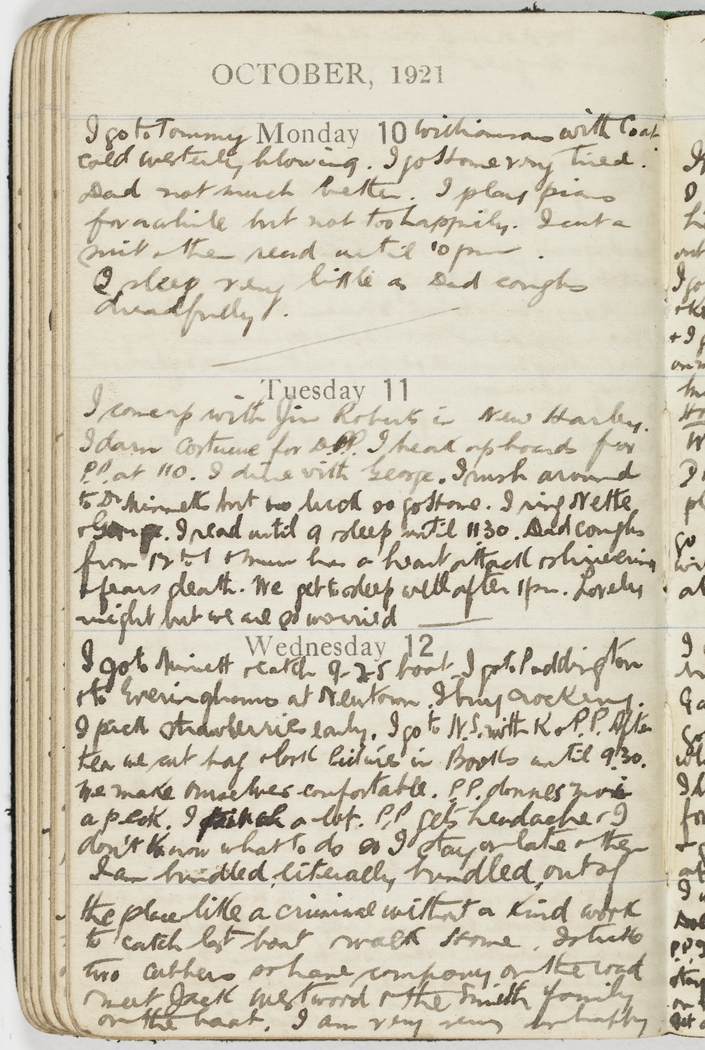 OCTOBER, 1921
I go to Tommy Monday 10 Williamsons with Coat
cold westerly blowing. I go home very tired.
Dad not much better. I play piano
for awhile but not too happily. I cut a
suit & then read until 10 pm.
I sleep very little as Dad coughs
dreadfully.
Tuesday 11
I come up with Jim Roberts in New Harley.
I darn costume for P.P. I beat up boards for
P.P. at 110. I dine with George. I rush around
to Dr Minnett but no luck so go home. I ring Nette
& George. I read until 9 & sleep until 11 30. Dad coughs
from 12 to 1 & Mum has a heart attack & shivering
& fears death. We get to sleep well after 1 pm. Lovely
night but we are so worried
Wednesday 12
I go to Minnett & catch 9-25 boat. I go to Paddington
& to Everinghams at Newtown. I buy crockery.
I pick strawberries early. I go to N.S. with K & P.P. After
tea we cut hay & look Pictures in Books until 9.30.
We make ourselves comfortable. P.P. donnes moi
a peck. I a lot. P.P. gets headache & I
don't know what to do as I stay on late & then
I am bundled, literally bundled, out of
the place like a criminal without a kind word
to catch last boat & walk home. I
two so have company on the road
meet Jack Westwood & the Smith family
on the boat. I am very very unhappy